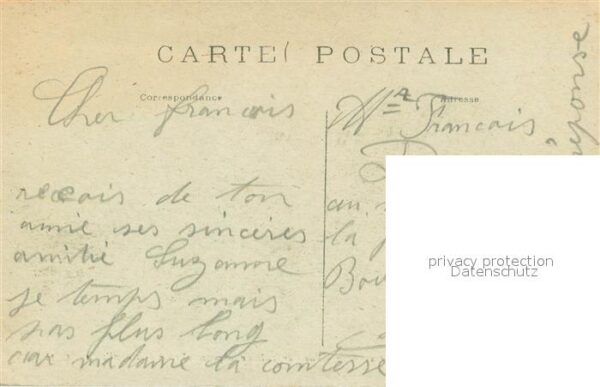 CARTE POSTALE
Correspondance
Adresse
Cher francois
recois de ton
amie ses sincères
amitié Suzanne
je temps mais
pas plus long
car madame la comtesse
Francois
au
la
réponse
privacy protection
Datenschutz